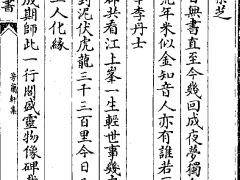 芝
無書直至今幾回成夜夢獨
年来似金知音人亦有誰若
李丹士
共看江上峯一生輕世事幾
到泥伏虎龍三千三百里今日
人化緣
成期師此一行閣盛靈物像碑
軒集
書